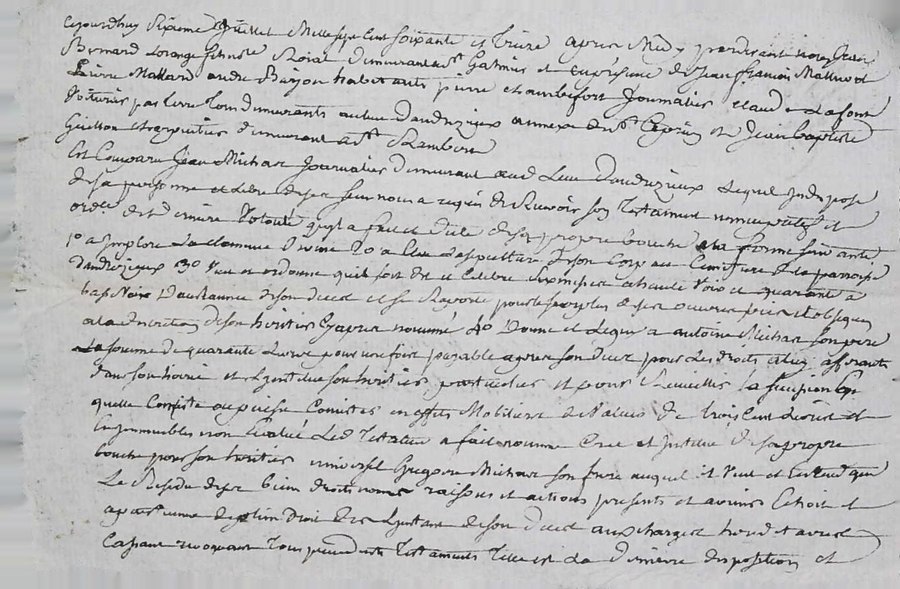 cejourdhuy sixieme Juillet Mille sept Cent soixante et treize apres Midy pardevant nous Jean
Bernard Lorange Nore Roial demeurant a St Galmier et en presence de Jean francois Mallund
pierre Mallard andre Barjon habitants pierre chambefort Journalier claude Lafont
Voiturier par terre tous demeurants au lieu Dandrezieux annexe de St Cyprien et Jean baptiste
Guitton charpentier demeurant a St Rambert
Est Comparu Jean Michar Journalier demeurant aud Lieu Dandrezieux Lequel Indispose
de sa personne et Libre de ses sens nous a requis de Recevoir son Testament noncupatif et
ordre de derniere Volonté quil a fait et dicté de sa propre bouche en la forme suivante
1o a Imploré La clemence Divine 2o a Elu La sepulture de son Corps au Cimetiere de la paroisse
dandrezieux 3o Veut et ordonne quil soit dit et Celebré six messes a haute Voix et quarante a
basse Voix Dans Lannee de son deced et se Raporte pour le surplus de ses oeuvres pies et obseques
a la discretion de son heritier Cy apres nommé 4o Donne et Legue a antoine Michar son pere
La somme de quarante Livres pour une fois payable apres son deced pour Les droits a luy afferants
dans son hoirie et Linstitue son heritier particulier et pour Recueillir la succession
quelle Consiste ou puisse Consister en effets Mobiliers de Valeur de trois Cent Livres et
Immeubles non Evalué Led Testateur a fait nommé Créé et Institué de sa propre
bouche pour son heritier universel Gregoire Michar son frere auquel il Veut et Entend que
Le Residu de ses biens droits noms raisons et actions presents et avenir Echoit et
apartienne de plein Droit des Linstant de son deced aux charges susd et avec
Cassant revoquant Tous precedents Testaments Telle est La derniere disposition et